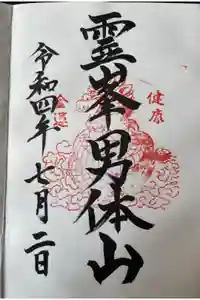 健康
霊峯男体山
金運
令和四年七月二日